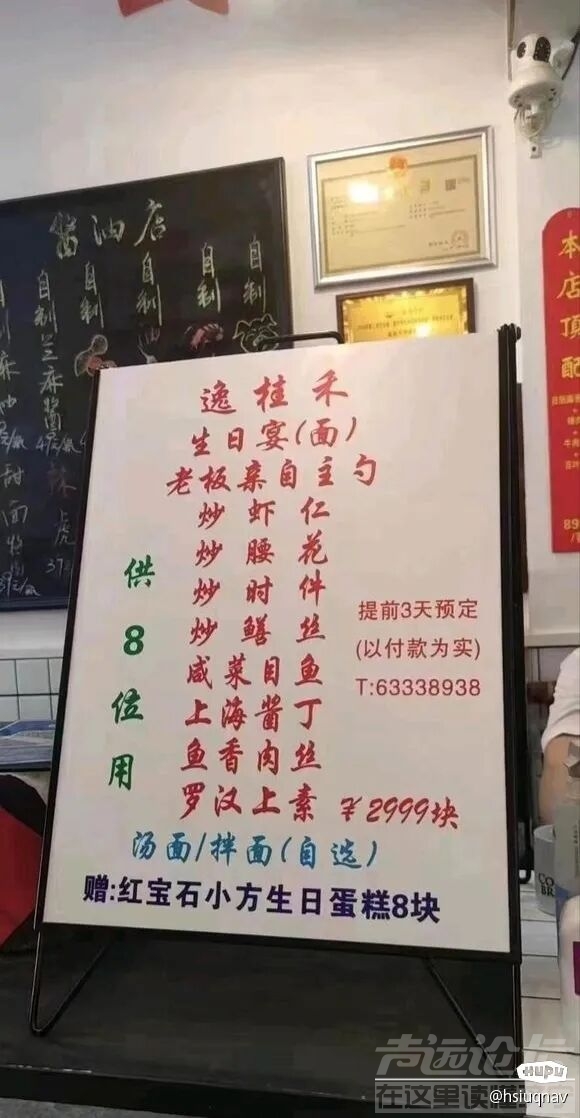 酱油店
自制
自制
自制
自制
自制
兰麻酱
本店顶配
逸桂禾
生日宴(面)
老板亲自主勺
炒虾仁
炒腰花
炒时件
炒鳝丝
咸菜目鱼
上海酱丁
鱼香肉丝
罗汉上素 ¥2999块
供8位用
提前3天预定
(以付款为实)
T:63338938
汤面/拌面(自选)
赠:红宝石小方生日蛋糕8块
HUPU
在这里读
@hsiuqnav